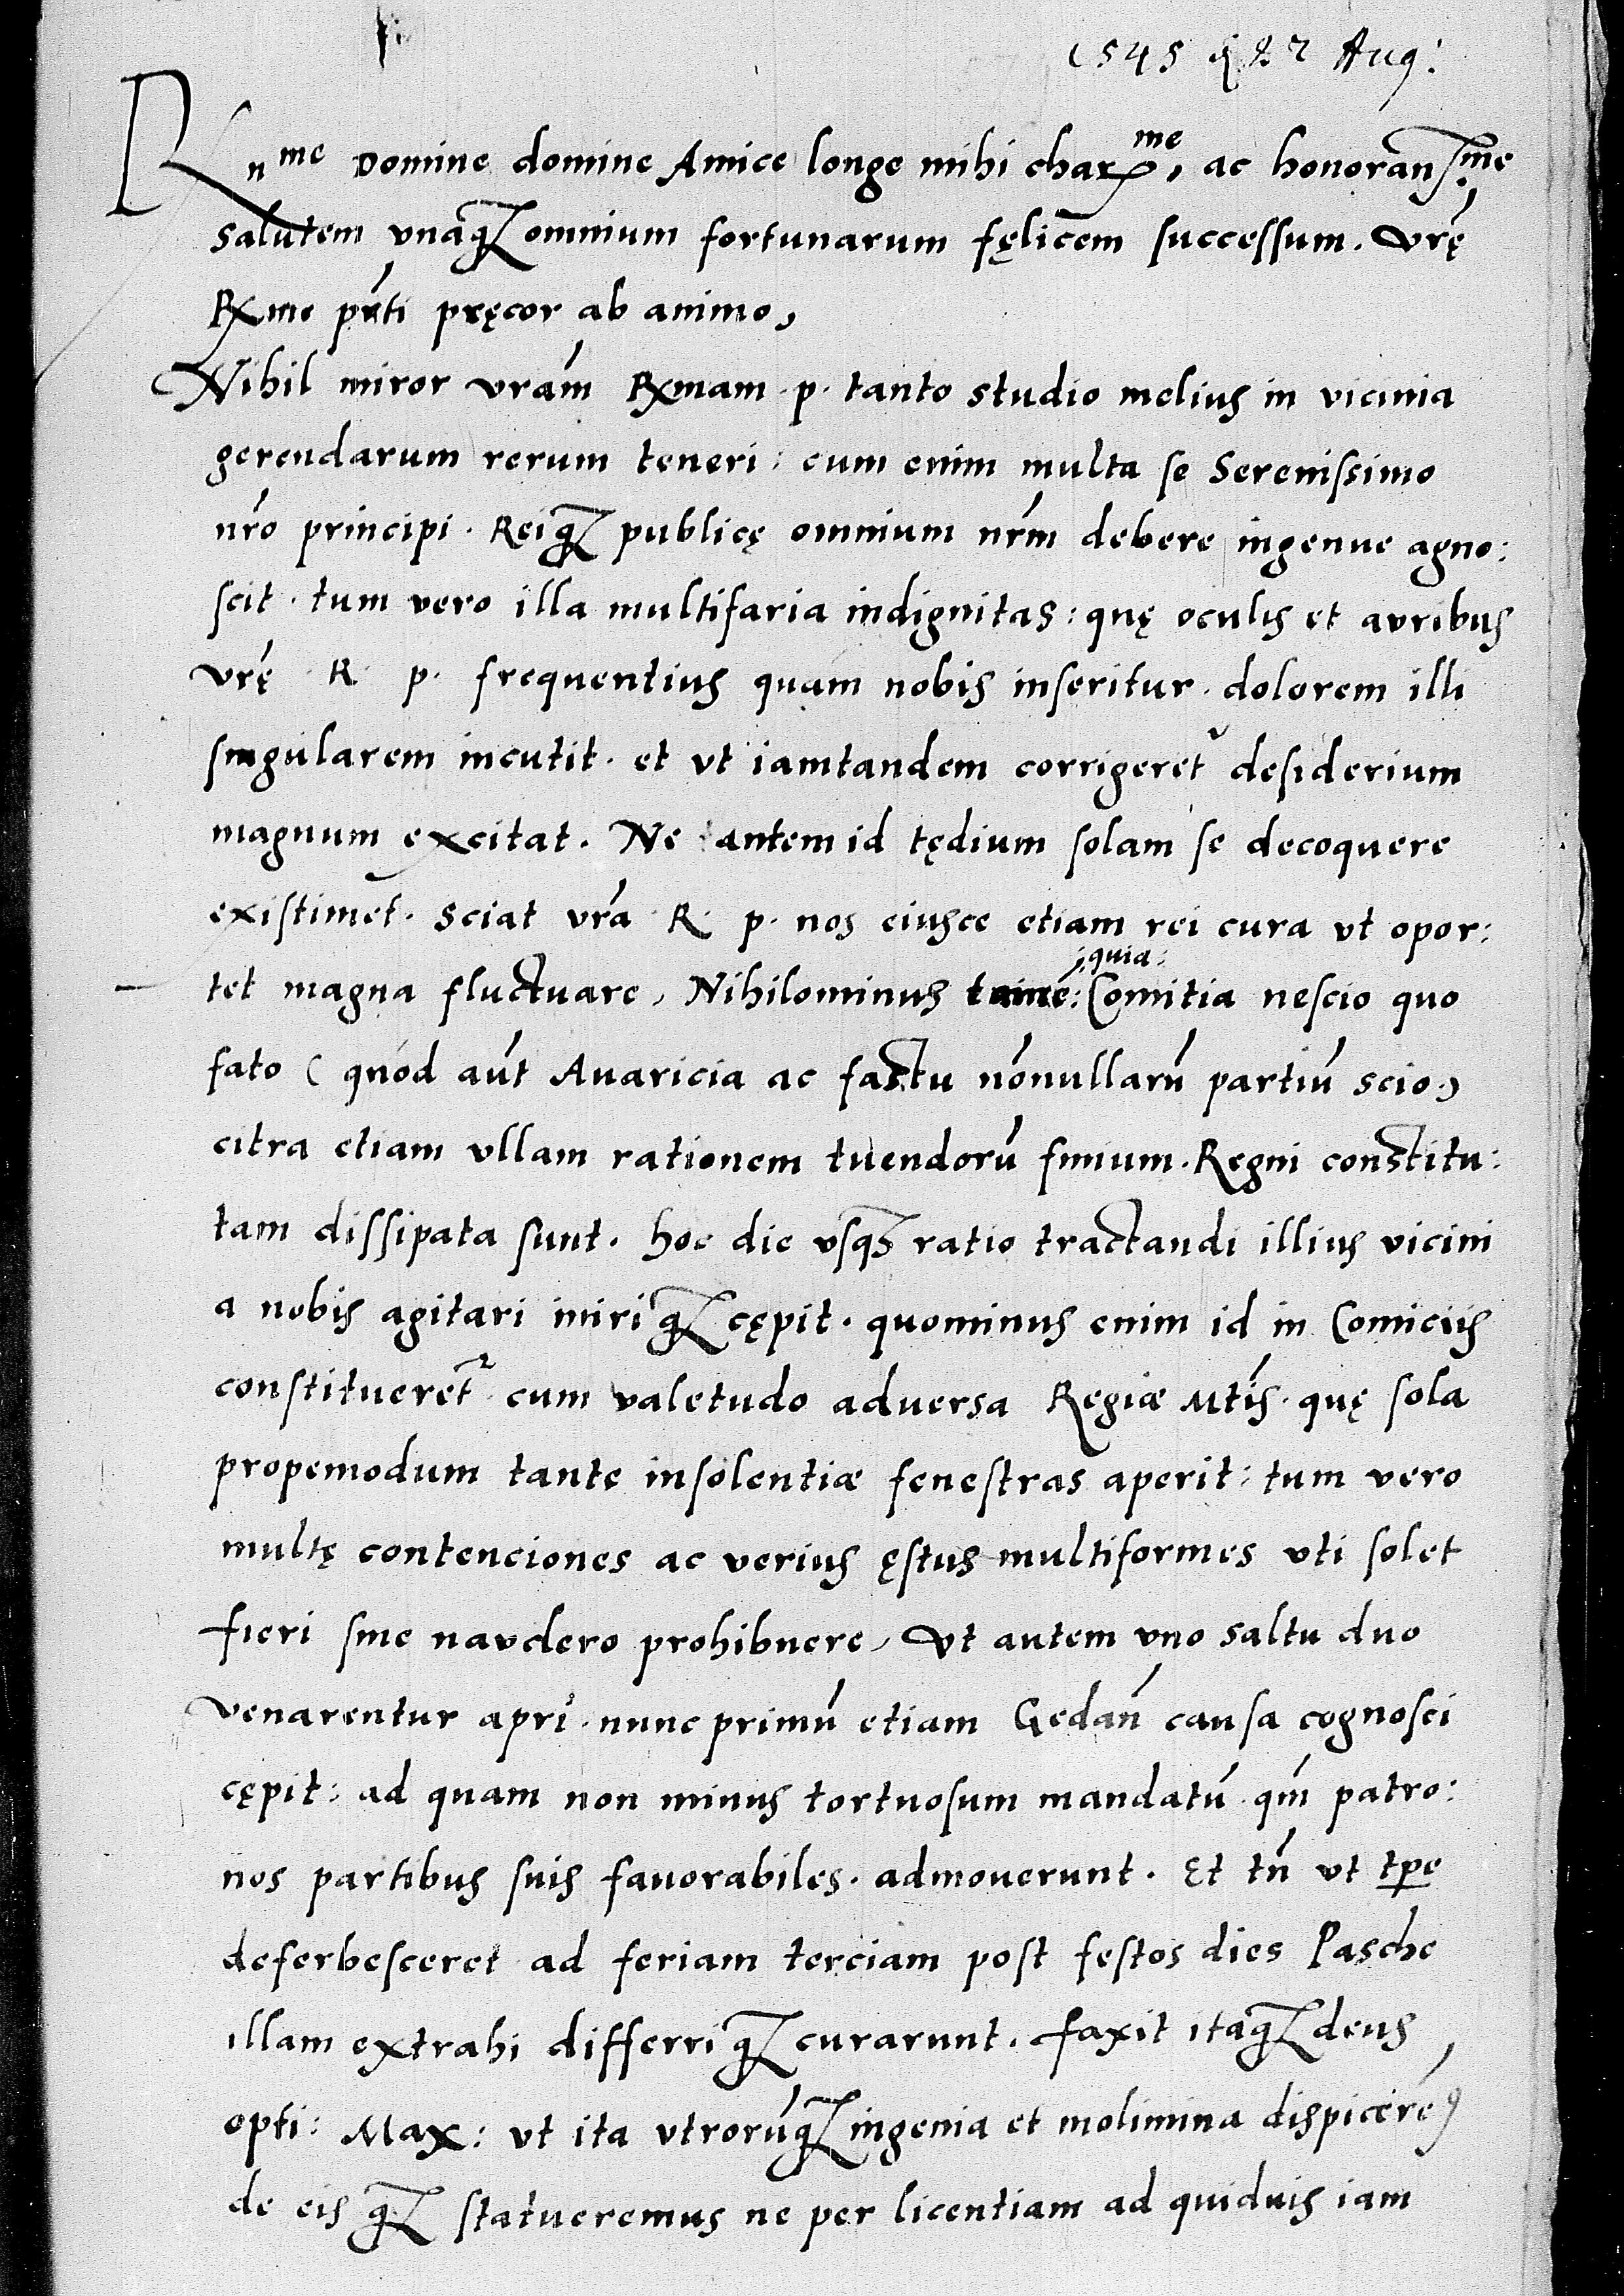 1545 d 27 Aug:
Rnme Domine domine Amice longe mihi charme, ac honoransme,
salutem vnaq(ue) omnium fortunarum fęlicem successum. Vrę
Rxme pnti pręcor ab animo,
Nihil miror vram Rxmam . p . tanto studio melius in vicinia
gerendarum rerum teneri: cum enim multa se Serenissimo
nro principi . Reiq(ue) publicę omnium nrm debere ingenue agno:
scit . tum vero illa multifaria indignitas: quę oculis et auribus
vrę R . p . frequentius quam nobis inseritur . dolorem illi
singularem incutit . et vt iamtandem corrigeret desiderium
magnum excitat . Ne autem id tędium solam se decoquere
existimet . sciat vra R . p . nos eiusce etiam rei cura vt opor:
;quia:
tet magna fluctuare, Nihilominus tame: Comitia nescio quo
fato ( quod aut Auaricia ac fastu nonullaru partiu scio.)
citra etiam vllam rationem tuendoru finium . Regni constitu:
tam dissipata sunt . hoc die vsq(ue) ratio tractandi illius vicini
a nobis agitari iniri q(ue) cępit . quominus enim id in Comiciis
constitueret cum valetudo aduersa Regiæ Mtis . quę sola
propemodum tantę insolentiæ fenestras aperit: tum vero
multę contenciones ac verius ęstus multiformes vti solet
fieri sine nauclero prohibuere, Vt autem vno saltu duo
venarentur apri . nunc primu etiam Gedan causa cognosci
cępit: ad quam non minus tortuosum mandatu qm patro:
nos partibus suis fauorabiles . admouerunt . Et tn vt tpe
deferbesceret ad feriam terciam post festos dies Pasche
illam extrahi differri q(ue) curarunt . faxit itaq(ue) deus
opti: Max: vt ita vtroruq(ue) ingenia et molimina dispicere9
de eis q(ue) statueremus ne per licentiam ad quiduis iam